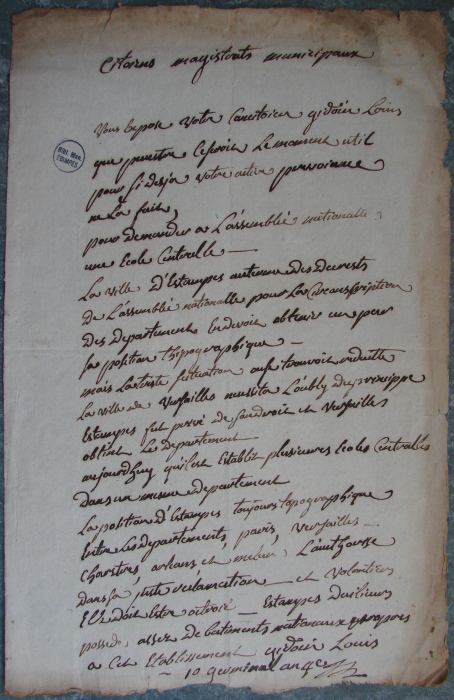 Citoiens magistrats municipaux
BIBL. MUN. ETAMPES
Vous Expose Votre Concitoien gidoin Louis
que peutetre Ce seroit Le moment util
pour si desja votre active
ne La fait,
pour demander a L'assemblée nationalle
une Ecole Centralle —
La ville D'Estampes au terme des Decrests
De L'assemblée nationalle pour La Circonscription
Des Departement Endevoit obtenir un par
sa position thipographique —
mais La triste situation ou se trouvoit reduitte
La ville de Versailles L'oubly du principe
Estampes fut privé de son droit et Versailles
obtint Le Departement
aujourdhuy qu'il est Establi plusieures Ecoles Centralles
dans un mesme departement
La position d'Estampes toujours topographique
Entre Les departements, paris, Versailles —
Chartres, orleans et melun, L'authorise
dans sa juste reclamation — et Volontiers
Elle doit Estre — Estampes D'ailleurs
possede assez de batiments nationaux propres
a Cet Etablissement gidoin Louis
— 10 germinal an 4e